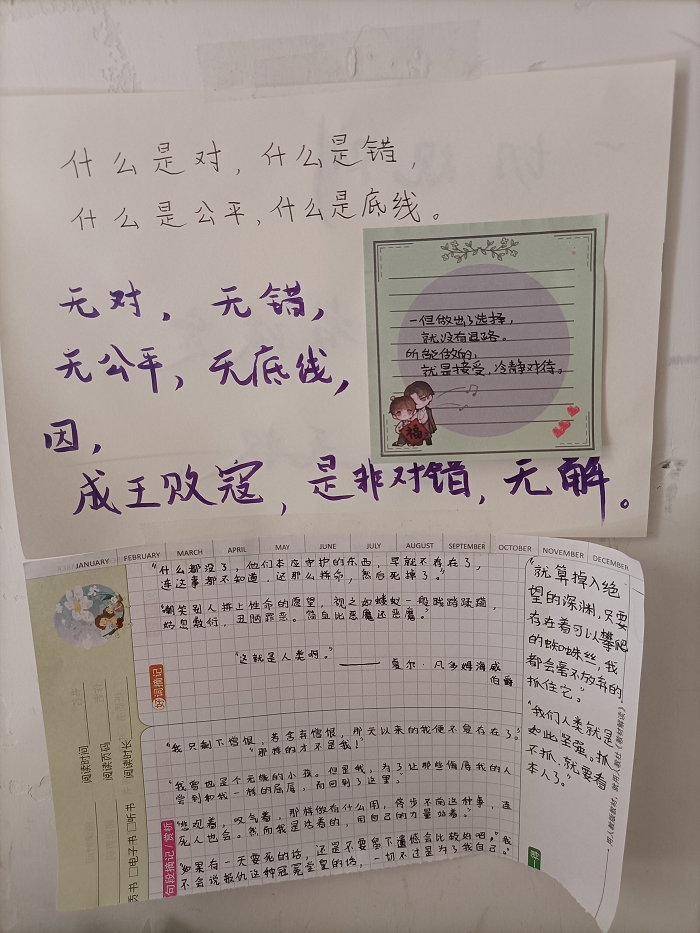 什么是对，什么是错，
什么是公平，什么是底线。
无对，无错，
无公平，无底线，
因，
成王败寇，是非对错，无解。
一但做出了选择，
就没有退路。
所能做的，
就是接受，冷静对待。
福
JANUARY FEBRUARY MARCH APRIL MAY JUNE JULY AUGUST SEPTEMBER OCTOBER NOVEMBER DECEMBER
“什么都没了，他们本应守护的东西，早就不存在了，
连这事都不知道，还那么拼命，然后死掉了。”
嘲笑别人拼上性命的愿望，视之如蝼蚁一般践踏蹂躏，
愚弄他们，丑陋罪恶。简直比恶魔还恶魔。”
“这就是人类啊。”
—— 夏尔·凡多姆海威
伯爵
好词摘记
“我只剩下憎恨，若舍弃憎恨，那天以来的我便不复存在了。”
“那样的才不是我！”
“我曾也是个无能的小孩。但是我，为了让那些侮辱我的人
尝到和我一样的屈辱，而回到了这里。”
“悲观着，叹气着，那样做有什么用，停步不前这种事，连
死人也会。然而我是活着的，用自己的力量站着。”
“如果有一天要死的话，还是不要留下遗憾会比较好吧。”“我
不会说报仇这种冠冕堂皇的话，一切不过是为了我自己。”
句段摘记/赏析
阅读时间
阅读页码
阅读时长
质书 □电子书 □听书
“就算掉入绝
望的深渊，只要
存在着可以攀爬
的蜘蛛丝，我
都会毫不放弃的
抓住它。”
“我们人类就是
如此坚强。抓
不抓，就要看
本人了。”